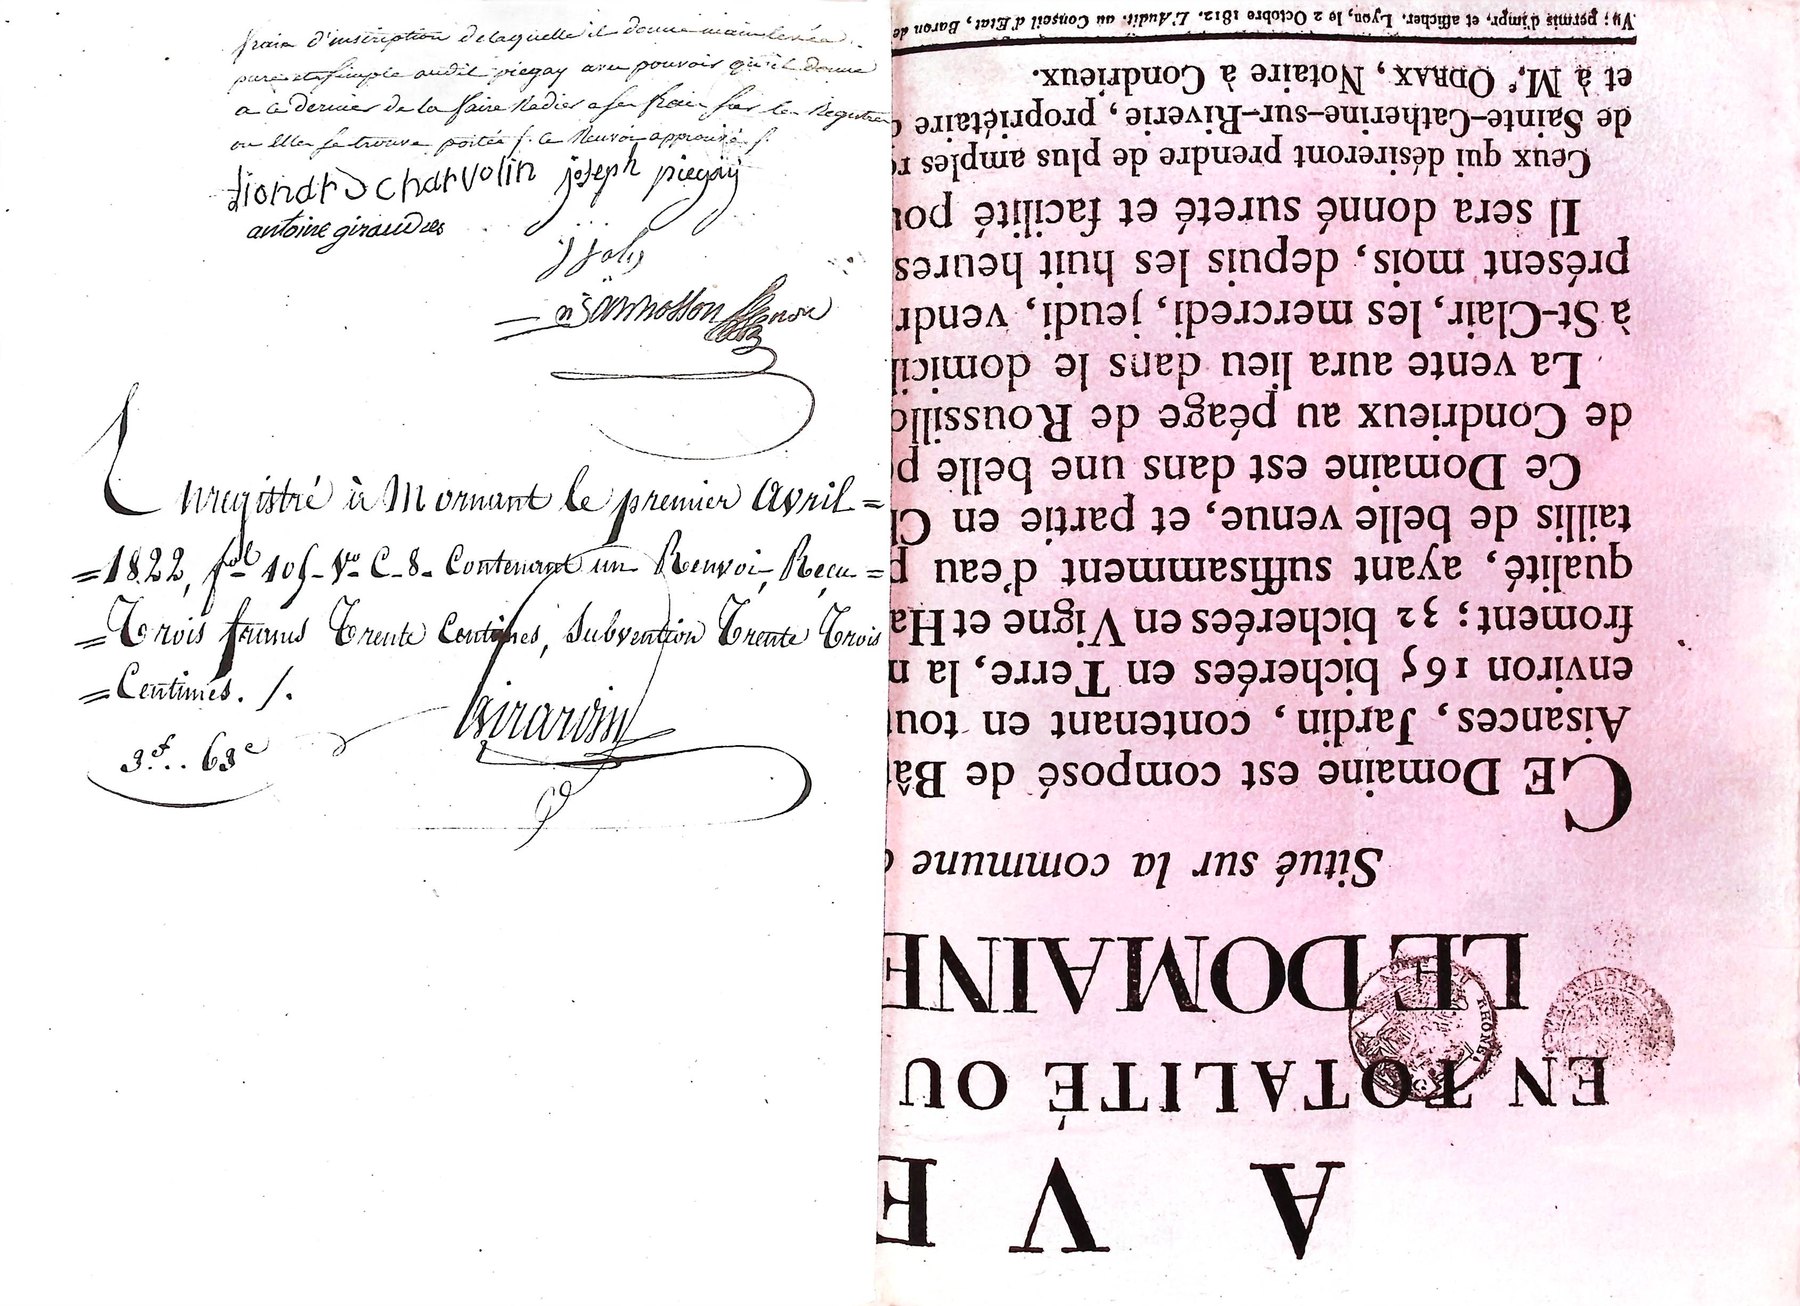 frais d'inscription de laquelle il donne mainlevée
pure et simple audit piegay avec pouvoir qu'il donne
a ce dernier de la faire Radier a ses frais sur les Registres
ou Elle se trouve portée /. ce Renvoi approuvé /.
charvolin joseph piegay
antoine giraudes
Enregistré à Mornant le premier avril =
= 1822, fol. 105 Vo. C. 8. Contenant un Renvoi, Reçu =
= Trois francs Trente Centimes, Subvention Trente Trois
= Centimes. /.
Girardon
3f.. 63c
A VE
EN TOTALITÉ OU
LE DOMAINE
Situé sur la commune
CE Domaine est composé de Bâ
Aisances, Jardin, contenant en tou
environ 165 bicherées en Terre, la
froment; 32 bicherées en Vigne et Ha
qualité, ayant suffisamment d'eau p
taillis de belle venue, et partie en C
Ce Domaine est dans une belle p
de Condrieux au péage de Roussill
La vente aura lieu dans le domici
à St-Clair, les mercredi, jeudi, vendr
présent mois, depuis les huit heures
Il sera donné sureté et facilité pou
Ceux qui désireront prendre de plus amples r
de Sainte-Catherine-sur-Riverie, propriétaire
et à M.e ODRAX, Notaire à Condrieux.
Vu; permis d'impr. et afficher. Lyon, le 2 Octobre 1812. L'Audit. au Conseil d'Etat, Baron de
RHÔNE